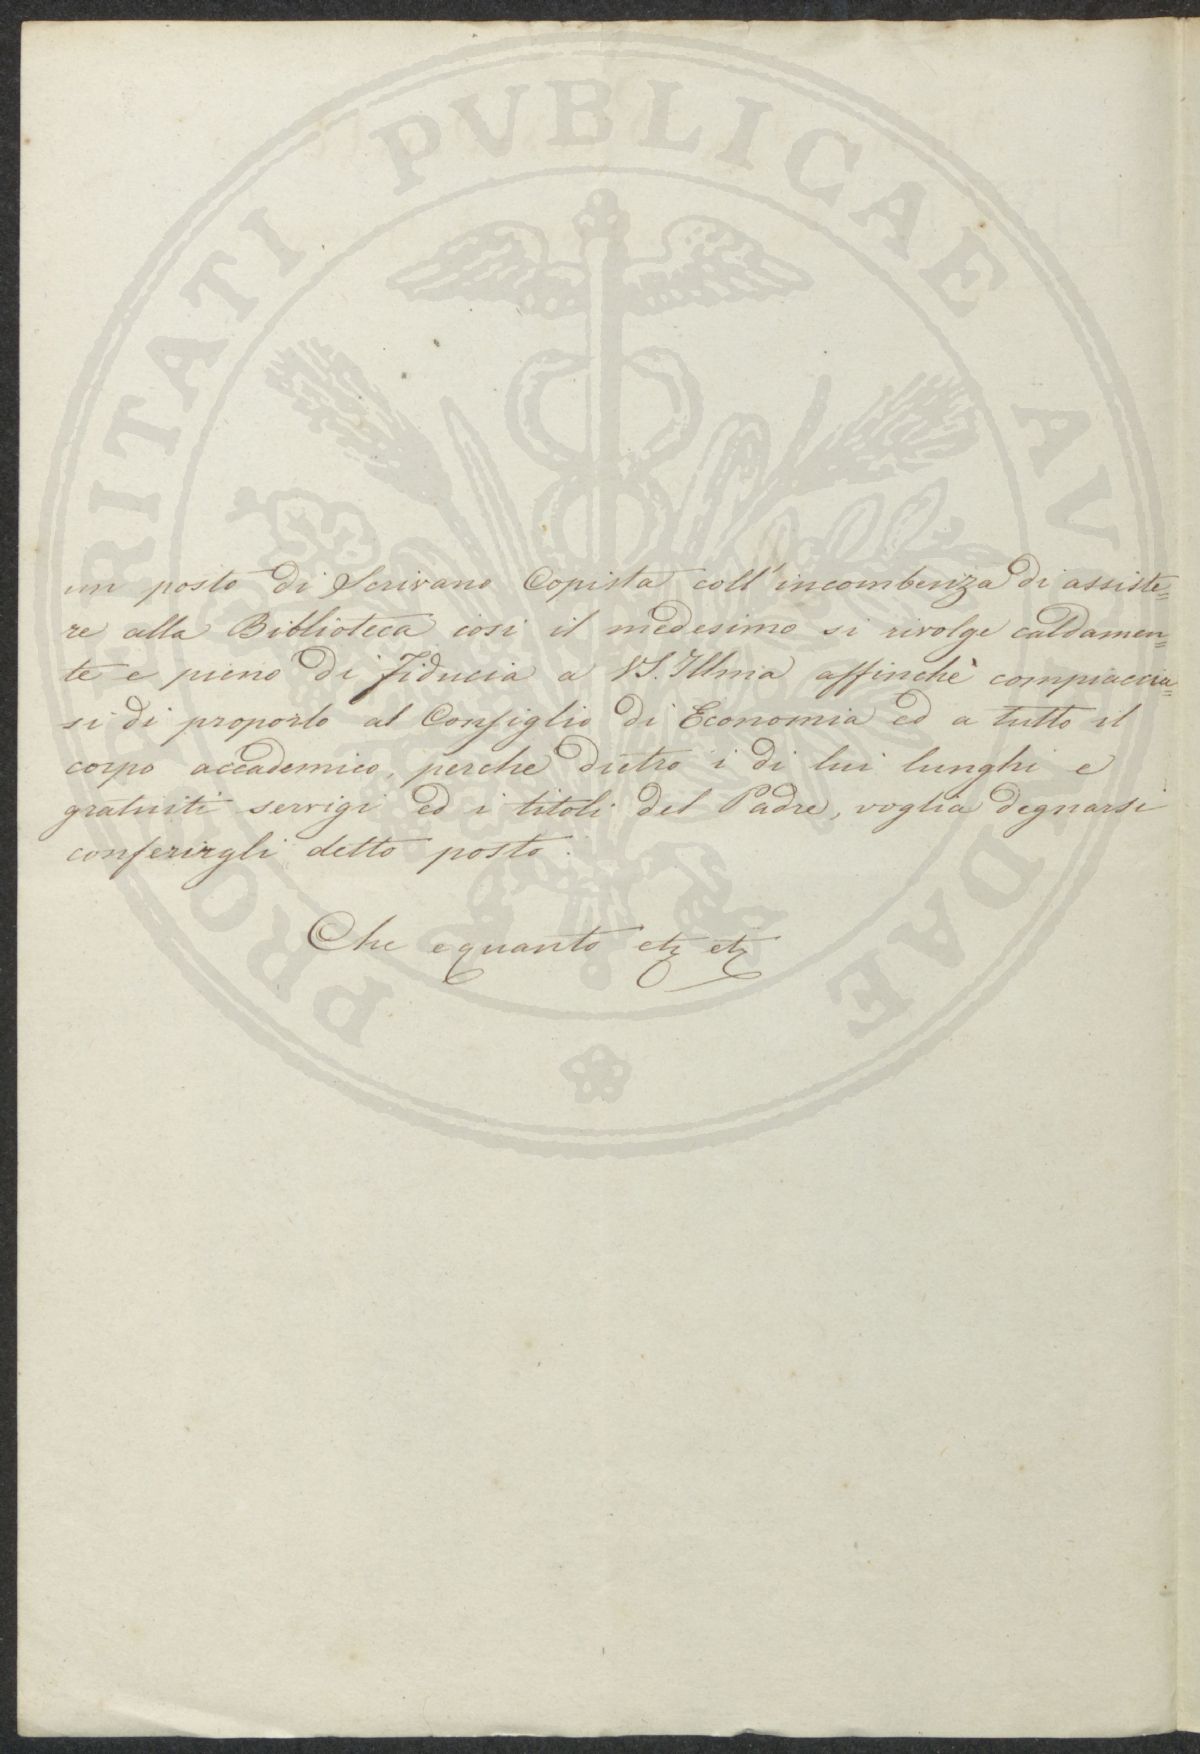 PROSPERITATI PVBLICAE AVGENDAE
un posto di Scrivano Copista coll'incombenza di assiste=
re alla Biblioteca cosi il medesimo si rivolge caldamen=
te e pieno di fiducia a VS. Illma affinchè compiaccia=
si di proporlo al Consiglio di Economia ed a tutto il
corpo accademico, perche dietro i di lui lunghi e
gratuiti servigi ed i titoli del Padre, voglia degnarsi
conferirgli detto posto.
Che equanto etz etz